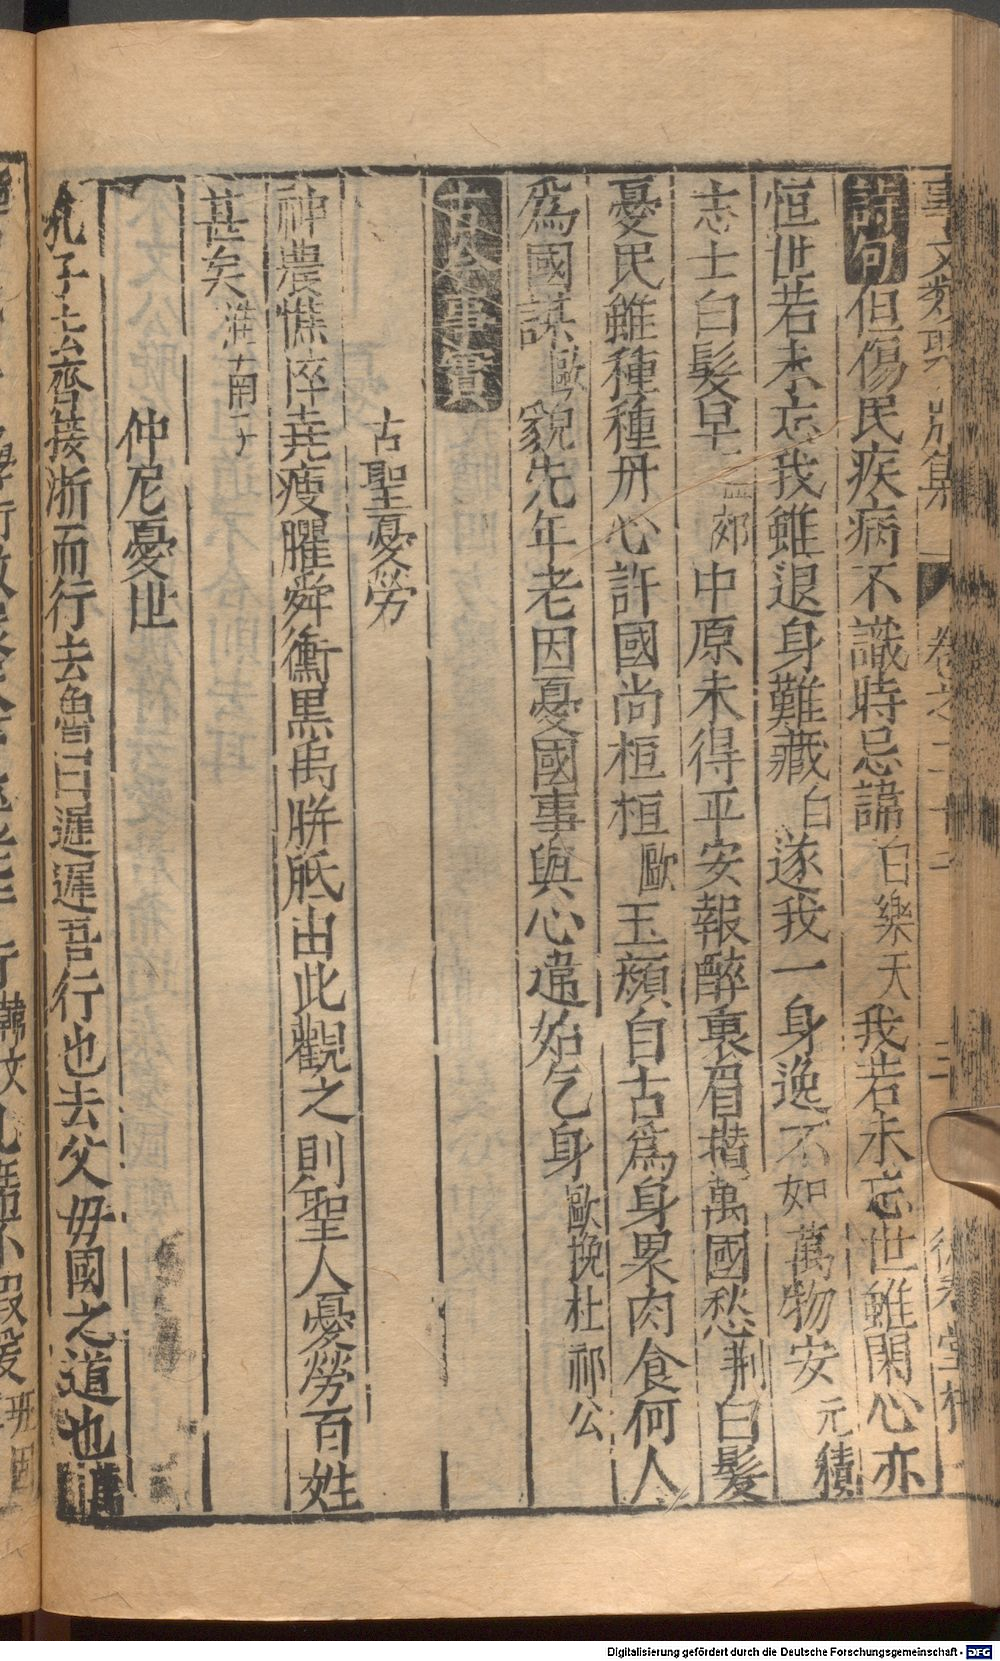 事文類聚 別集 卷之二十 三
詩句 但傷民疾病不識時忌諱白樂天我若未忘世雖閑心亦
恒世若未忘我雖退身難藏白遂我一身逸不如萬物安元稹
志士白髮早孟郊中原未得平安報醉裏眉攢萬國愁荆白髮
憂民雖種種丹心許國尚桓桓歐玉頰自古爲身累肉食何人
爲國謀歐貌先年老因憂國事與心違始乞身歐挽杜祁公
古今事實
古聖憂勞
神農憔悴堯瘦臞舜黴黑禹胼胝由此觀之則聖人憂勞百姓
甚矣淮南子
仲尼憂世
孔子去齊接淅而行去魯曰遲遲吾行也去父毋國之道也萬
Digitalisierung gefördert durch die Deutsche Forschungsgemeinschaft - DFG